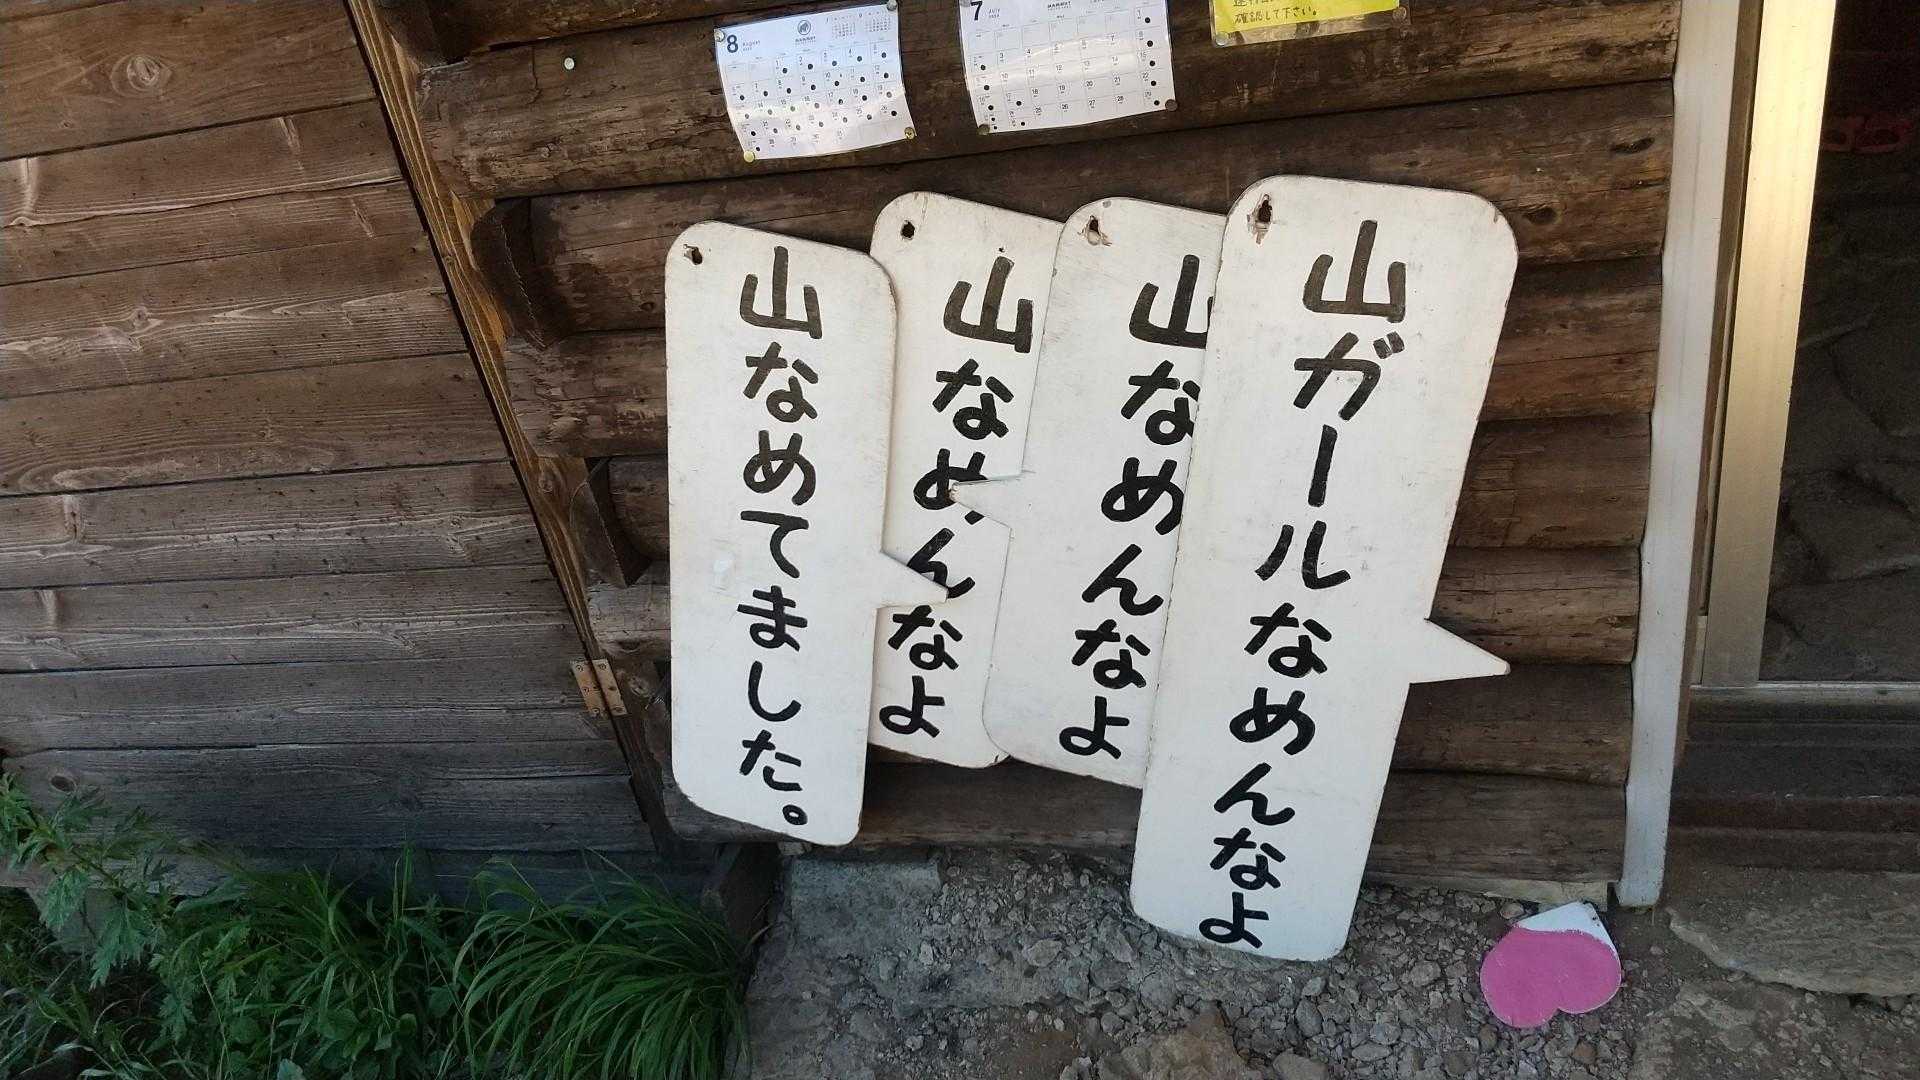 8
August
7
July
確認して下さい。
山なめてました。
山なめんなよ
山なめんなよ
山ガールなめんなよ